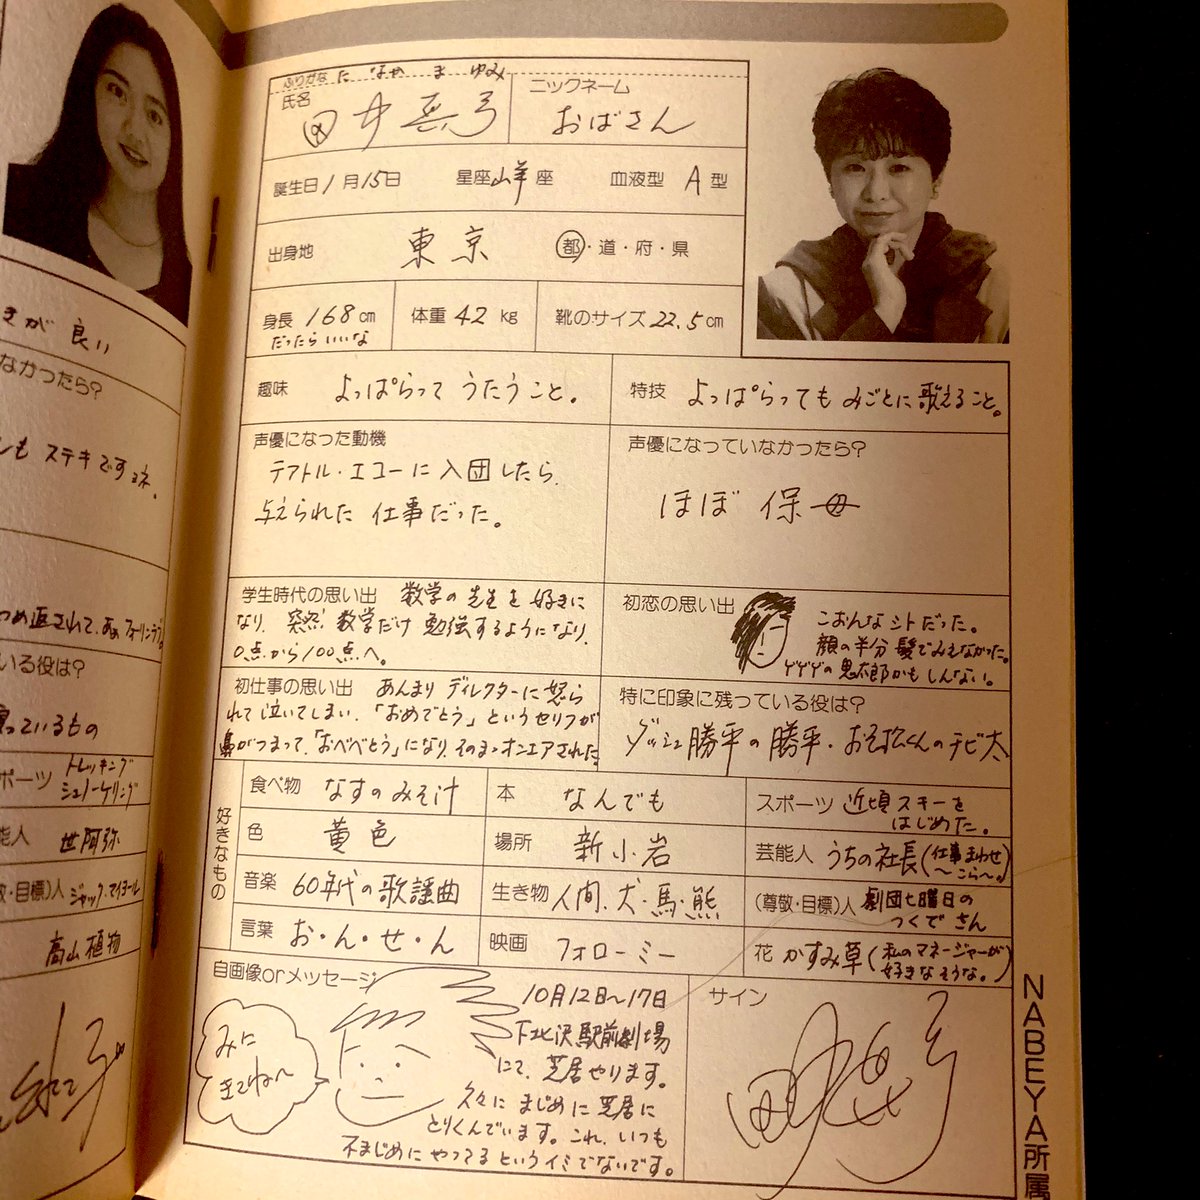 きが良い
なかったら?
しもステキですョネ。
つめ返されて、あぁフォーリンラブ。
いる役は?
っているもの
ポーツ トレッキング
シュノーケリング
能人 世阿弥
敬・目標)人 ジャック・マイヨール
高山植物
ふりがな たなかままゆみ
氏名 田中真弓
ニックネーム
おばさん
誕生日 1月15日 星座 山羊座 血液型 A型
出身地 東京 都・道・府・県
身長 168cm
だったらいいな
体重 42kg
靴のサイズ 22.5cm
趣味 よっぱらってうたうこと。
特技 よっぱらってもみごとに歌えること。
声優になった動機
テアトル・エコーに入団したら、
与えられた仕事だった。
声優になっていなかったら?
ほぼ保母
学生時代の思い出 数学の先生を好きに
なり、突然!数学だけ勉強するようになり、
0点から100点へ。
初恋の思い出 こおんなシトだった。
顔の半分髪でみえなかった。
ゲゲゲの鬼太郎かもしんない。
初仕事の思い出 あんまりディレクターに怒ら
れて泣いてしまい、「おめでとう」というセリフが
鼻がつまって、「おべべとう」になり、そのままオンエアされた。
特に印象に残っている役は?
ダッシュ勝平の勝平・おそ松くんのチビ太
好きなもの
食べ物 なすのみそ汁
本 なんでも
スポーツ 近頃スキーを
はじめた。
色 黄色
場所 新小岩
芸能人 うちの社長(仕事まわせ
〜こら〜。)
音楽 60年代の歌謡曲
生き物 人間、犬・馬・熊
(尊敬・目標)人 劇団七曜日の
つくでさん
言葉 お・ん・せ・ん
映画 フォロー・ミー
花 かすみ草(私のマネージャーが
好きなそうな。)
自画像orメッセージ
みに
きてね〜
10月12日〜17日
下北沢駅前劇場
にて、芝居やります。
久々にまじめに芝居に
とりくんでいます。これ、いつも
不まじめにやってるというイミでないです。
サイン
田中真弓
NABEYA所属